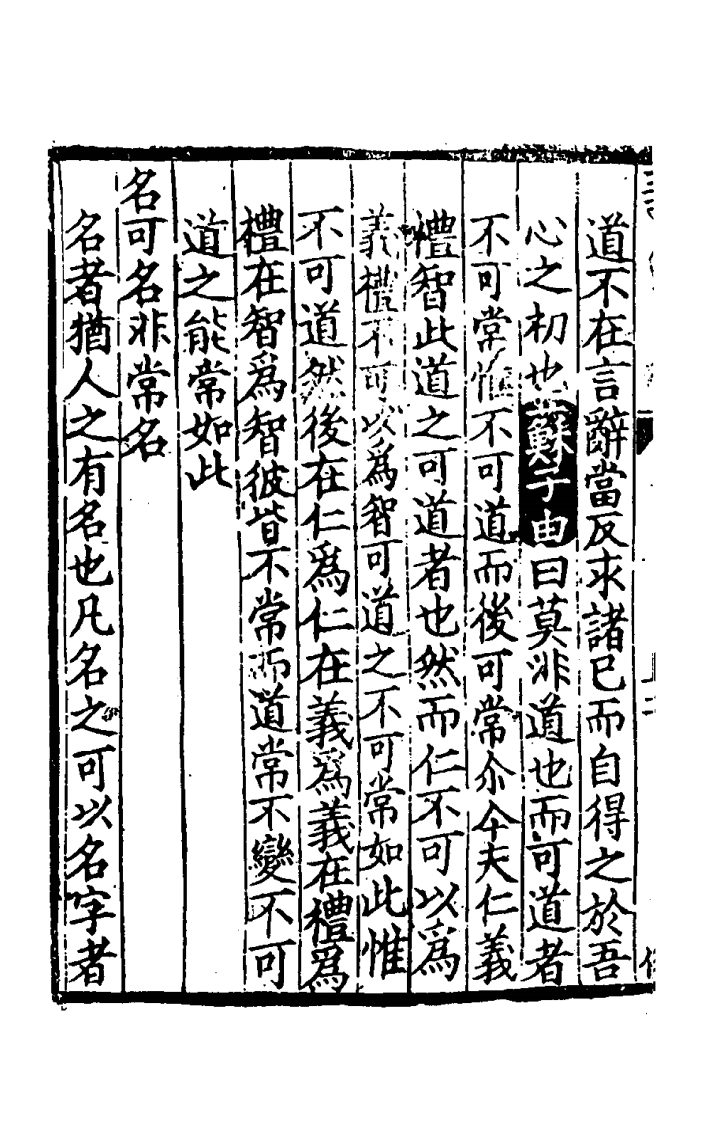 道不在言辭當反求諸已而自得之於吾
心之初也蘇子由曰莫非道也而可道者
不可常惟不可道而後可常尒今夫仁義
禮智此道之可道者也然而仁不可以爲
義禮不可以爲智可道之不可常如此惟
不可道然後在仁爲仁在義爲義在禮爲
禮在智爲智彼皆不常而道常不變不可
道之能常如此
名可名非常名
名者猶人之有名也凡名之可以名字者